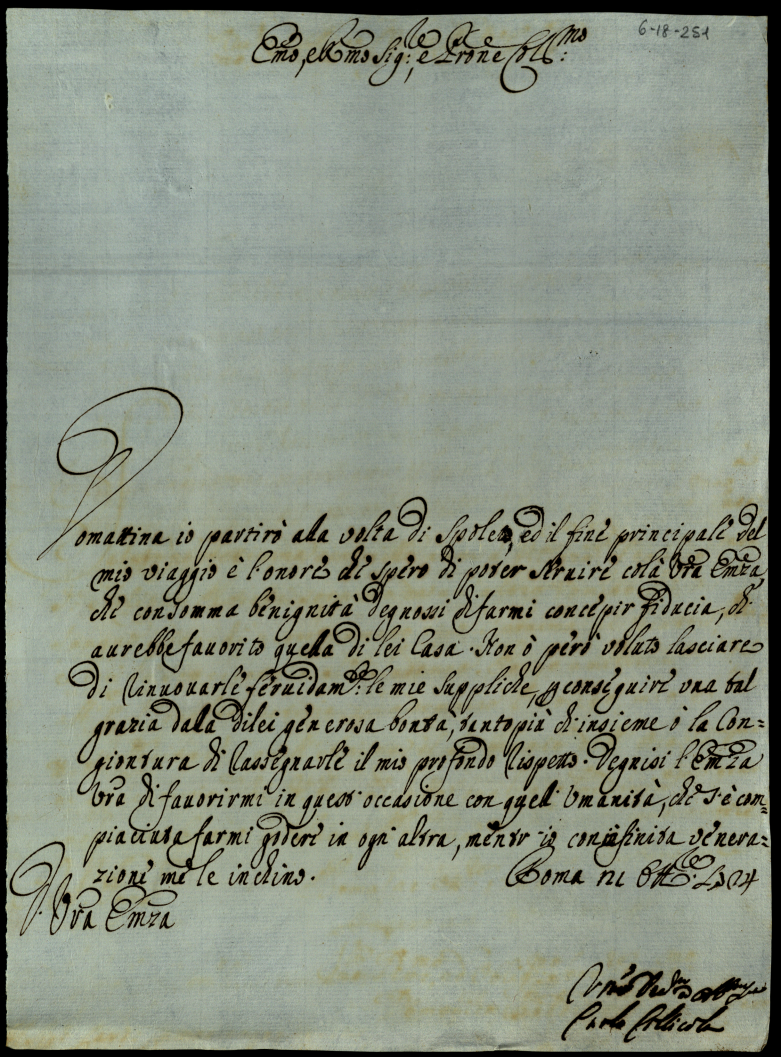 6-18-251
Emo, e Rmo Sig:re, e Prone Coll:mo
Domattina io partirò alla volta di Spoleto, ed il finè principalè del
mio viaggio è l'onorè chè spèro di poter seruirè colà Vra Emza,
chè con somma bènignità degnossi di farmi concèpir fiducia, chè
aurebbe fauorito quella di lei Casa. Non ò però voluto lasciare
di rinuouarlè fèruidam:te le mie supplichè, p consèguirè vna tal
grazia dalla di lei gènerosa bontà, tanto più ch'insieme ò la con=
giontura di rassègnarlè il mio profondo rispetto. Dègnisi l'Emza
Vra di fauorirmi in quest'occasione con quell'Vmanità, chè s'è com=
piaciuta farmi goderè in ogn'altra, mentr'io con infinita vènera=
zionè mè le inchino.
Roma Ott:re
D. Vra Emza
Carlo Collicola